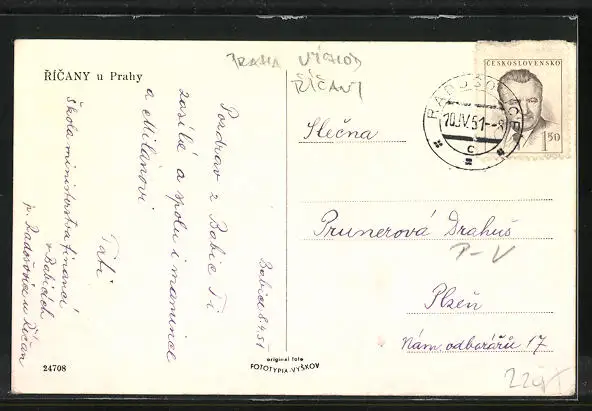 ŘÍČANY u Prahy
PRAHA VÝCHOD
ŘÍČANY
ČESKOSLOVENSKO
1.50
RADOŠOVICE
10.IV.51--8
c
Slečna
Prunerová Drahuš
P-V
Plzeň
Nám. odborářů 17
Babice 8.4.51
Pozdrav z Babic Ti
zasílá a spolu i mamince
a Milanovi
Táti
Škola ministerstva financí
v Babicích
p. Radošovice u Říčan
24708
original foto
FOTOTYPIA-VYŠKOV